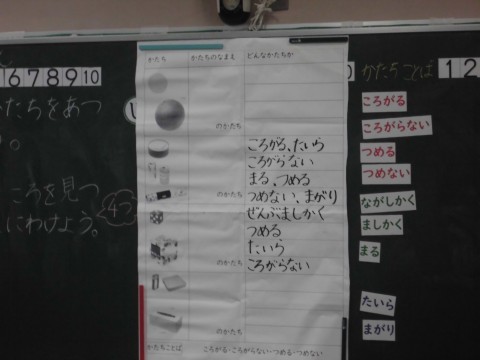 6 7 8 9 10
かたちをあつ
ころを見つ
にわけよう。
かたち かたちのなまえ どんなかたちか
のかたち
ころがる、たいら
ころがらない
まる、つめる
のかたち つめない、まがり
ぜんぶましかく
つめる
たいら
のかたち ころがらない
のかたち
かたちことば ころがる・ころがらない・つめる・つめない
かたちことば 1 2
ころがる
ころがらない
つめる
つめない
ながしかく
ましかく
まる
たいら
まがり